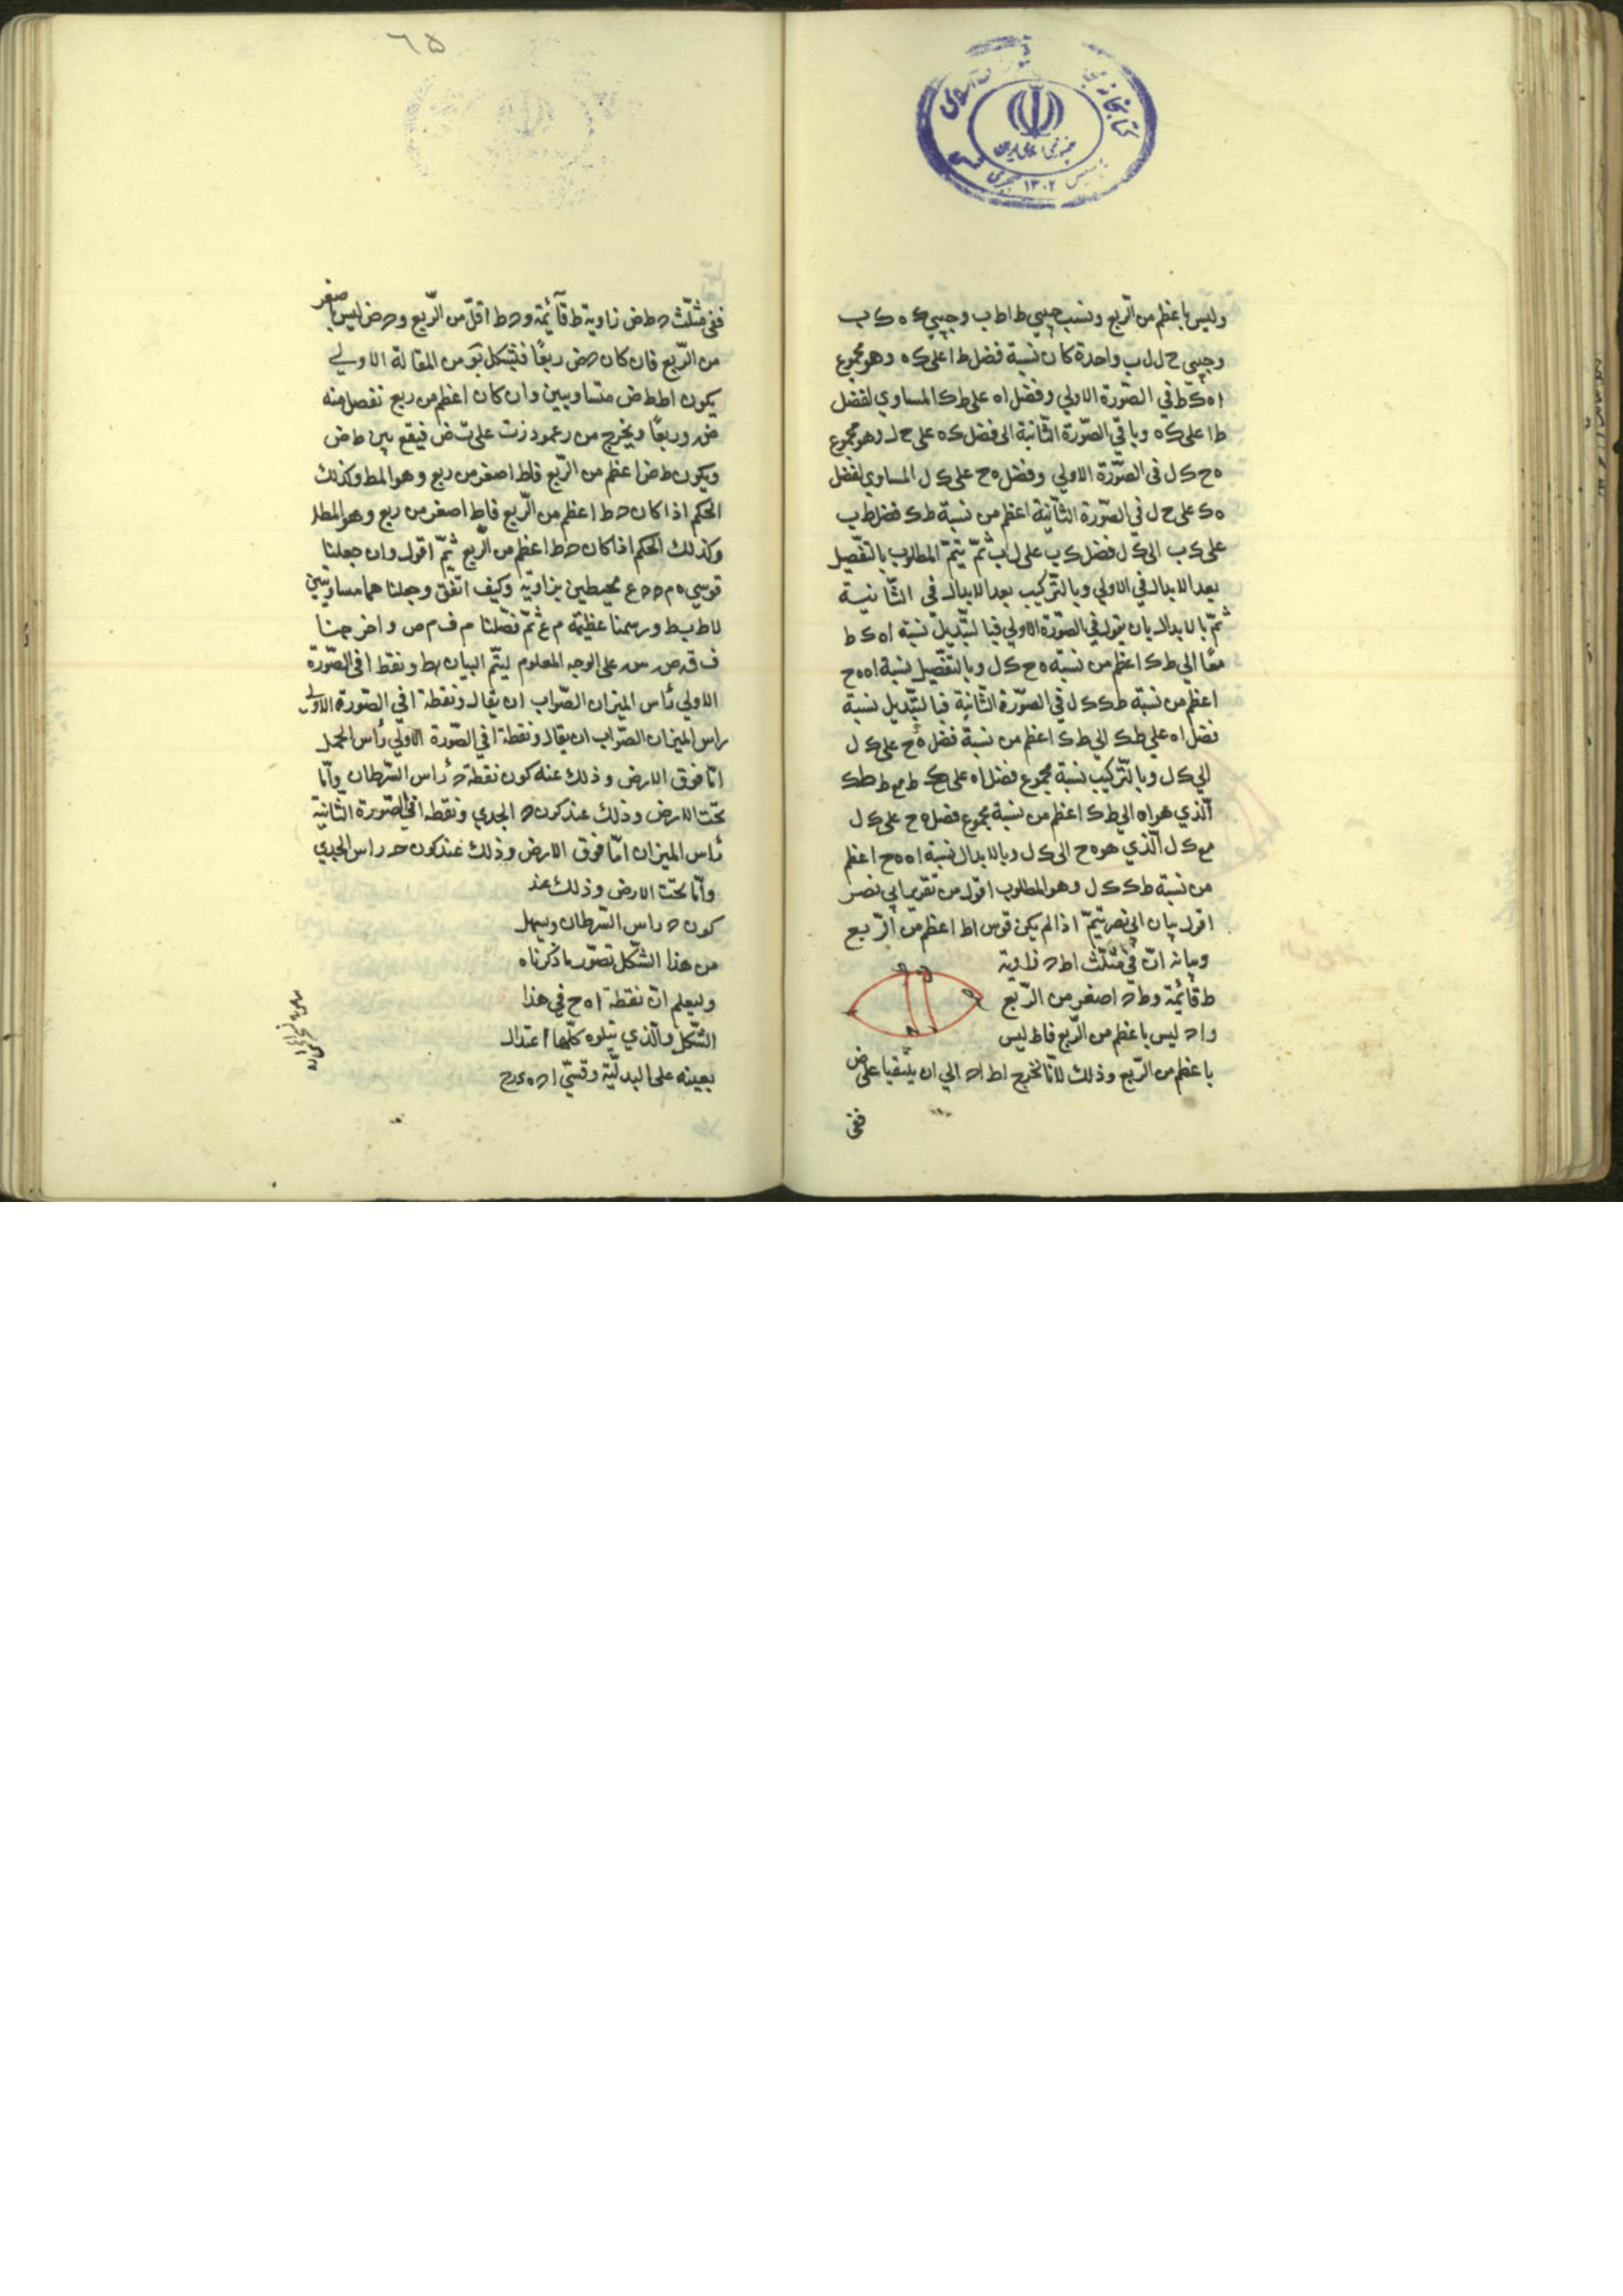 وليس باعظم من الربع ونسب جيبي ط ا ط ب وجيبي ك ه ك ب
وجيبي ح ل ل ب واحدة كان نسبة فضل ط ا على ك ه وهو مجموع
ا ه ك ط في الصّورة الاولي وفضل ا ه على ط ك المساوي لفضل
ط ا على ك ه وباقي الصّورة الثّانية الى فضل ك ه على ح ل وهو مجموع
ه ح ك ل في الصّورة الاولي وفضل ه ح على ك ل المساوي لفضل
ه ك على ح ل في الصّورة الثّانية اعظم من نسبة ط ك فضل ط ب
على ك ب الى ك ل فضل ك ب على ل ب ثمّ يتمّ المطلوب بالتفصيل
بعد الابدال في الاولي وبالتّركيب بعد الابدال في الثّانية
ثمّ بالابدال بان يقول في الصّورة الاولي فبالتّبديل نسبة ا ه ك ط
معًا الي ط ك اعظم من نسبة ه ح ك ل وبالتفصيل نسبة ا ه ه ح
اعظم من نسبة ط ك ك ل في الصّورة الثّانية فبالتّبديل نسبة
فضل ا ه على ط ك الي ط ك اعظم من نسبة فضل ه ح على ك ل
الي ك ل وبالتّركيب نسبة مجموع فضل ا ه على ك ط مع ط ك
الّذي هو ا ه الي ط ك اعظم من نسبة مجموع فضل ه ح على ك ل
مع ك ل الّذي هو ه ح الى ك ل وبالابدال نسبة ا ه ه ح اعظم
من نسبة ط ك ك ل وهو المطلوب اقول من تقرير ابي نصر
اقول بيان ابي نصر يتمّ اذا لم يكن قوس ا ط اعظم من الرّبع
وبيانه انّ في مثلّث ا ط د زاوية
ط قائمة وط د اصغر من الرّبع
وا د ليس باعظم من الرّبع فاط ليس
باعظم من الرّبع وذلك لانّا نخرج ا ط ا د الي ان يلتقيا على ض
ففي
٦٥
ففي مثلّث د ط ض زاوية ط قآئمة ود ط اقلّ من الرّبع ود ض ليس باصغر
من الرّبع فان كان د ض ربعًا فبشكل من المقالة الاولي
يكون ا ط ط ض متساويين وان كان اعظم من ربع نفصل منه
ض ر ربعًا ويخرج من ر عمود ر ت على ت ض فيقع بين ط ض
ويكون ط ض اعظم من الرّبع فاط اصغر من ربع وهو المط وكذلك
الحكم اذا كان د ط اعظم من الرّبع فاط اصغر من ربع وهو المطلـ
وكذلك الحكم اذا كان د ط اعظم من الرّبع ثمّ اقول وان جعلنا
قوسي ه م د ع محيطين بزاوية وكيف اتّفق وجعلنا هما مساويتين
لاط ب ط ورسمنا عظيمة م ع ثمّ فصّلنا م ف م ص واخرجنا
ف ق ص س على الوجه المعلوم ليتّم البيان ونقط ا في الصّورة
الاولي رأس الميزان الصّواب ان يقال ونقطة ا في الصّورة الاولي
راس الميزان الصّواب ان يقال ونقطة ا في الصّورة الاولي رأس الحمل
امّا فوق الارض وذلك عند كون نقطة د رأس السّرطان وامّا
تحت الارض وذلك عند كون د الجدي ونقطة ا في الصّورة الثّانية
رأس الميزان امّا فوق الارض وذلك عند كون د راس الجدي
وامّا تحت الارض وذلك عند
كون د راس السّرطان ويسهل
من هذا الشّكل تصوّر ما ذكرناه
وليعلم انّ نقطة ا ه ح في هذا
الشّكل والّذي يتلوه كلّها اعتدال
بعينه على البدليّة وقسيّ ا د ه ى ح